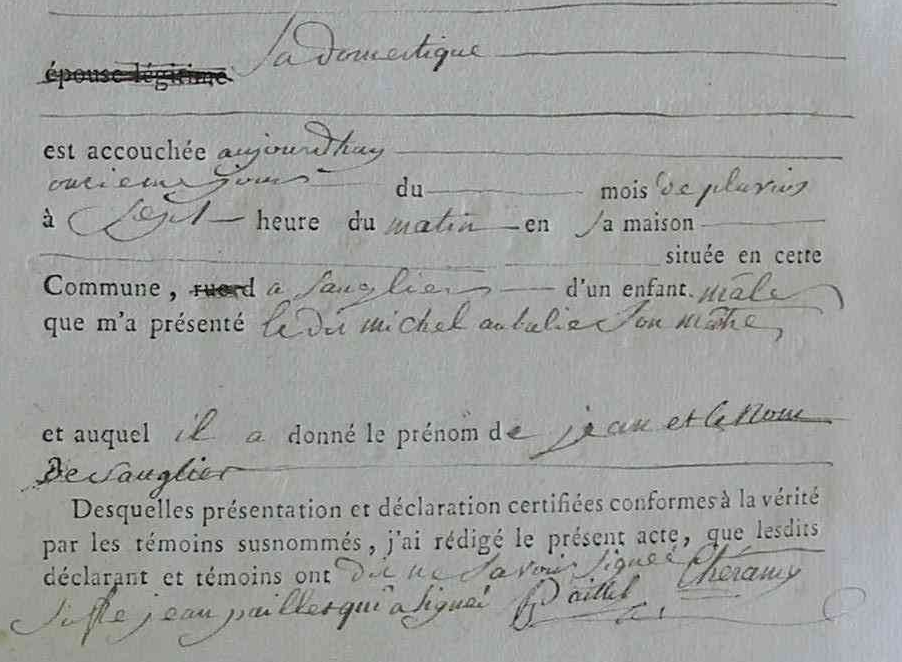 épouse légitime Sa domestique
est accouchée aujourdhuy
onzieme jour du mois de pluvios
à Sept heure du matin en Sa maison
située en cette
Commune, rue d a Sanglier d'un enfant male
que m'a présenté le dit michel aubalie Son maitre
et auquel il a donné le prénom de jean et le Nom
De sanglier
Desquelles présentation et déclaration certifiées conformes à la vérité
par les témoins susnommés, j'ai rédigé le présent acte, que lesdits
déclarant et témoins ont dit ne Savoir Signeé Cheramy
jean paillet qui a Signeé Paillet